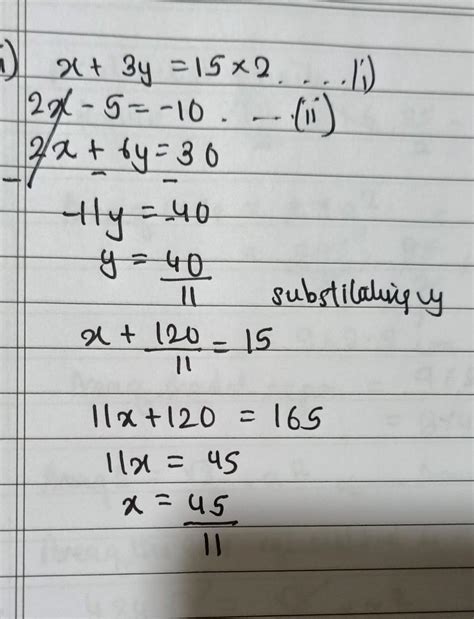 i) x + 3y = 15 × 2 . . . . (i)
2x - 5 = -10 . . . . (ii)
2x + 6y = 30
- - -
-11y = -40
y = 40/11
substilating y
x + 120/11 = 15
11x + 120 = 165
11x = 45
x = 45/11